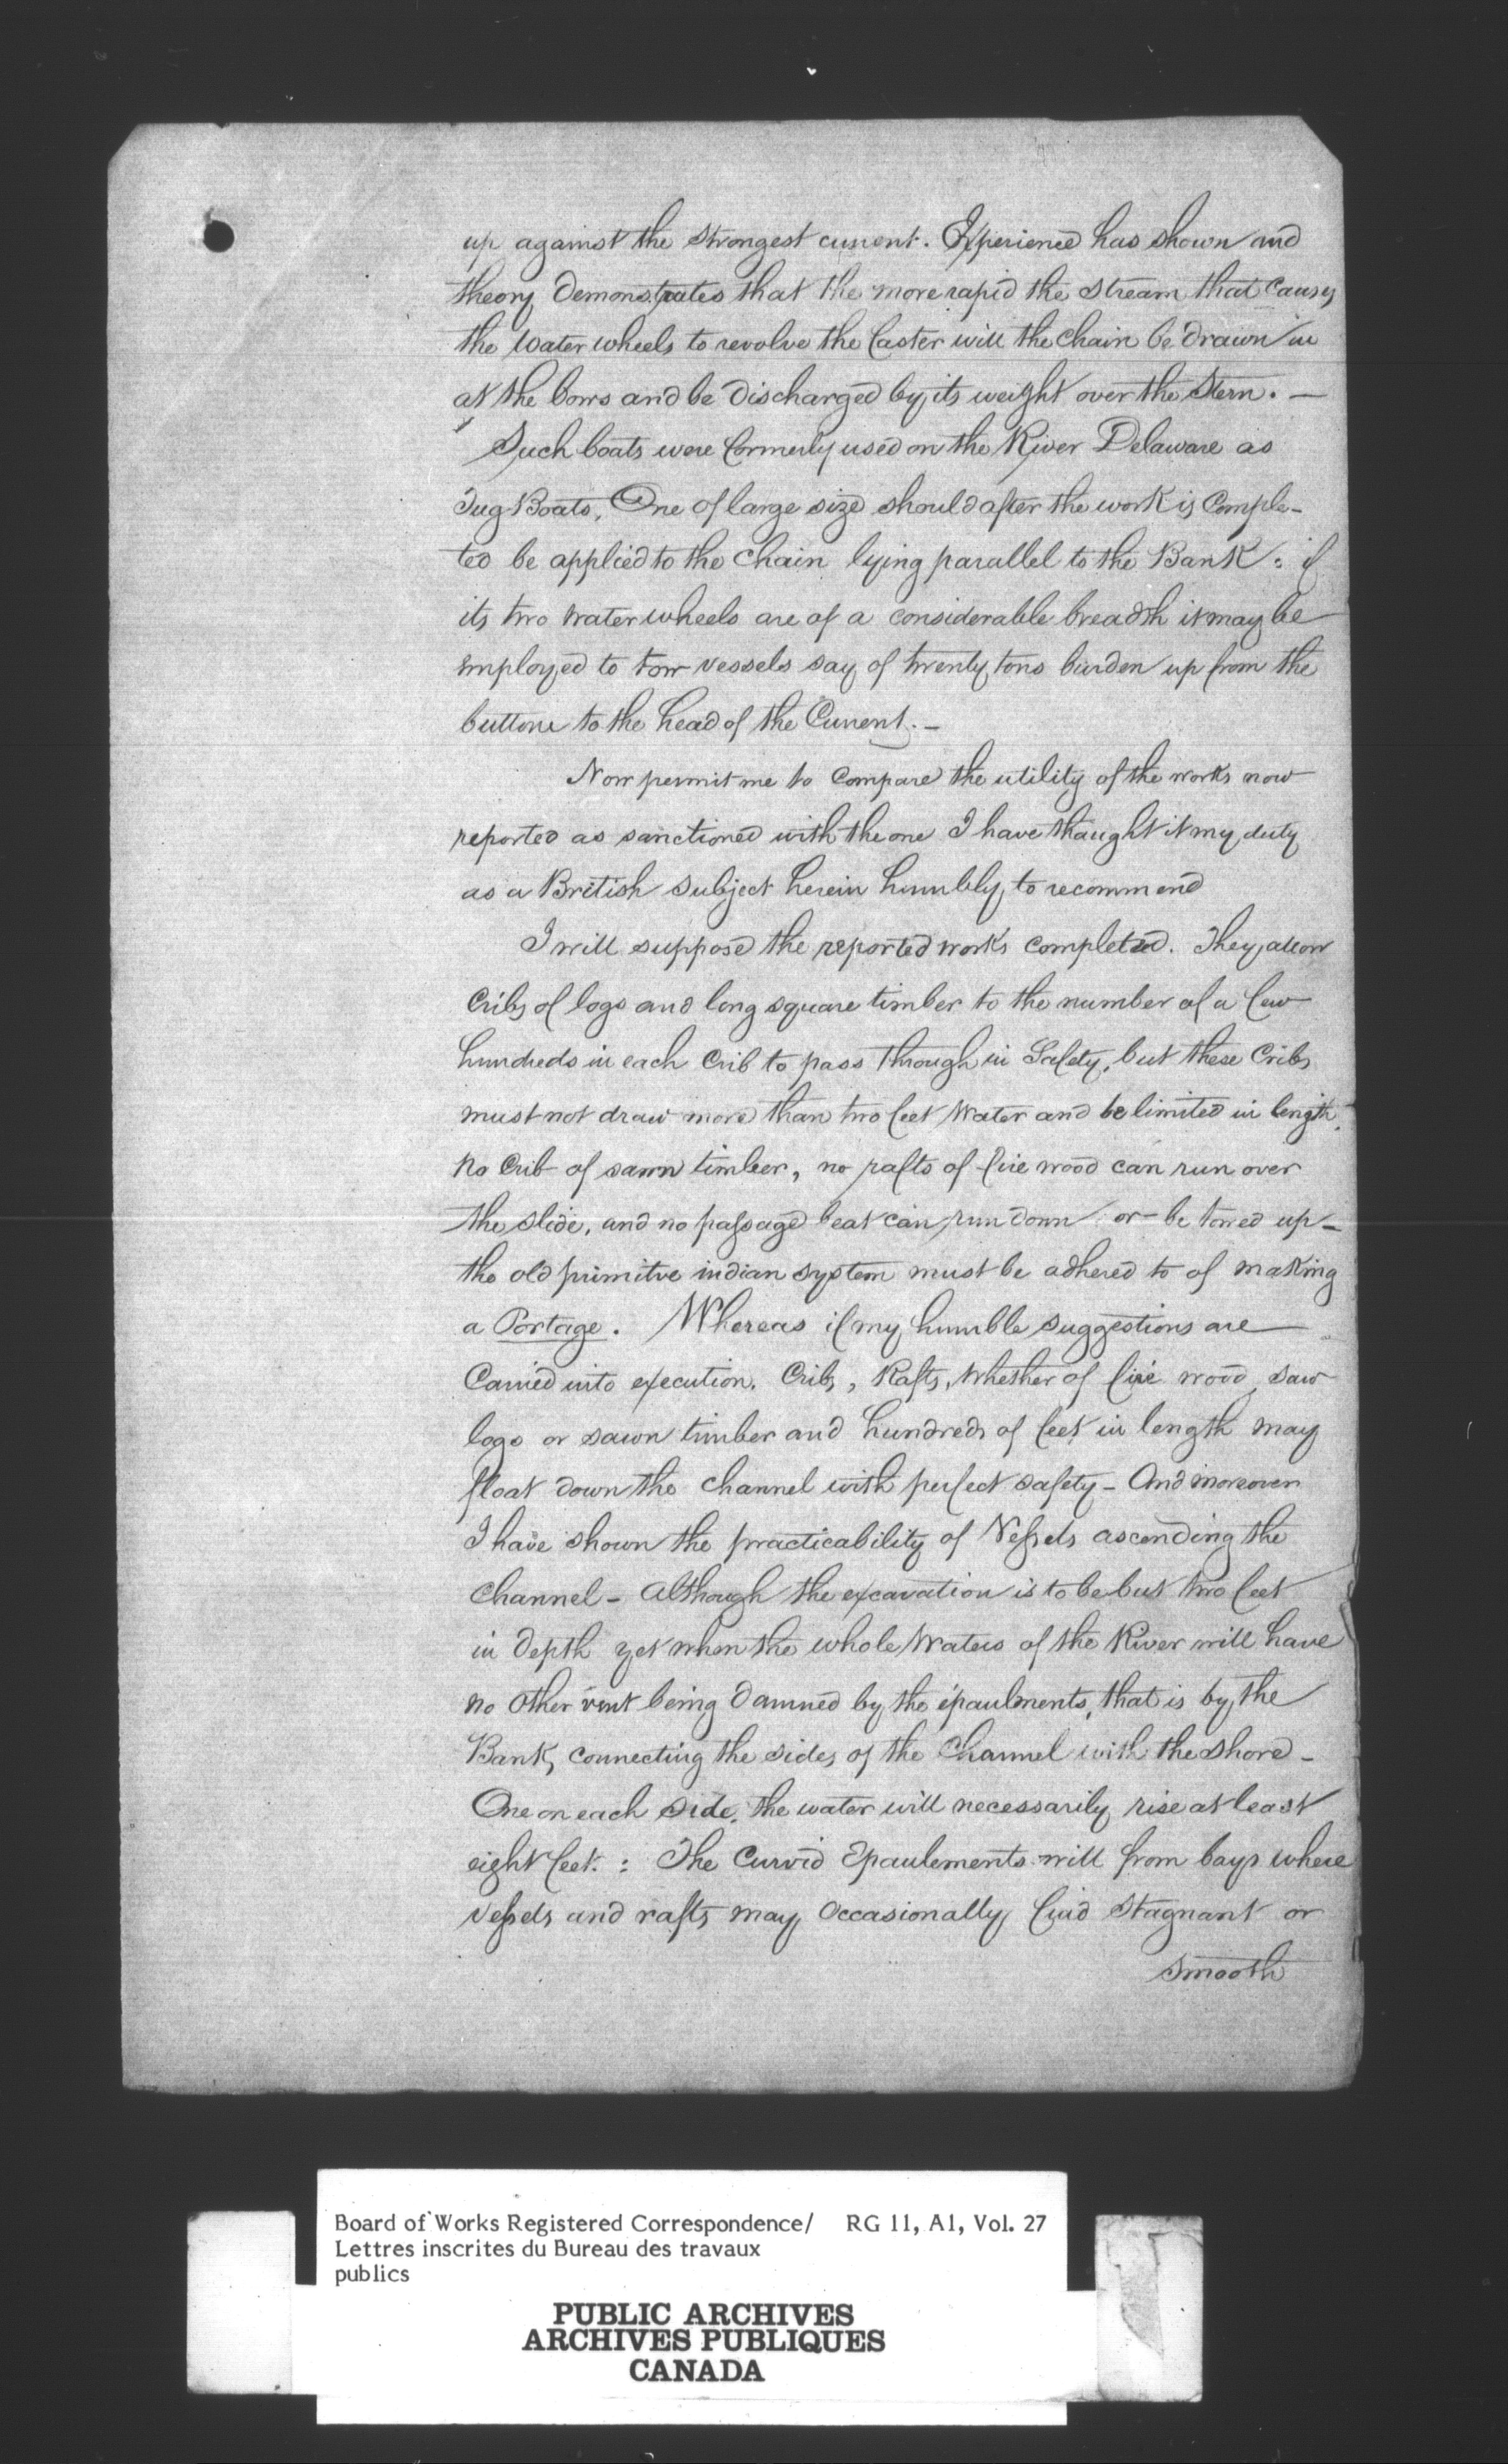 up against the strongest current. Experience has shown and
theory demonstrates that the more rapid the stream that causes
the water wheels to revolve the faster will the chain be drawn in
at the bows and be discharged by its weight over the stern. —
Such boats were formerly used on the River Delaware as
Tug Boats. One of large size should after the work is Comple-
ted be applied to the Chain lying parallel to the Bank: if
its two water wheels are of a considerable breadth it may be
employed to tow vessels say of twenty tons burden up from the
bottom to the head of the Current. —
Now permit me to Compare the utility of the works now
reported as sanctioned with the one I have thought it my duty
as a British subject herein humbly to recommend
I will suppose the reported works completed. They allow
Cribs of logs and long square timber to the number of a few
hundreds in each Crib to pass through in Safety, but these Cribs
must not draw more than two feet Water and be limited in length.
No Crib of sawn timber, no rafts of fire wood can run over
the slide, and no passage boat can run down or be towed up —
the old primitve indian system must be adhered to of making
a Portage. Whereas if my humble suggestions are
Carried into execution. Cribs, Rafts, Whether of fire wood, saw
logs or sawn timber and hundreds of feet in length may
float down the Channel with perfect safety — And moreover
I have shown the practicability of Vessels ascending the
Channel — Although the excavation is to be but two feet
in depth yet when the whole Waters of the River will have
no other vent being dammed by the épaulments, that is by the
Banks connecting the sides of the Channel with the shore —
One on each side, the water will necessarily rise at least
eight feet. : The Curvid Epaulements will from bays where
Vessels and rafts may Occasionally find Stagnant or
smooth
Board of Works Registered Correspondence/ RG 11, A1, Vol. 27
Lettres inscrites du Bureau des travaux
publics
PUBLIC ARCHIVES
ARCHIVES PUBLIQUES
CANADA